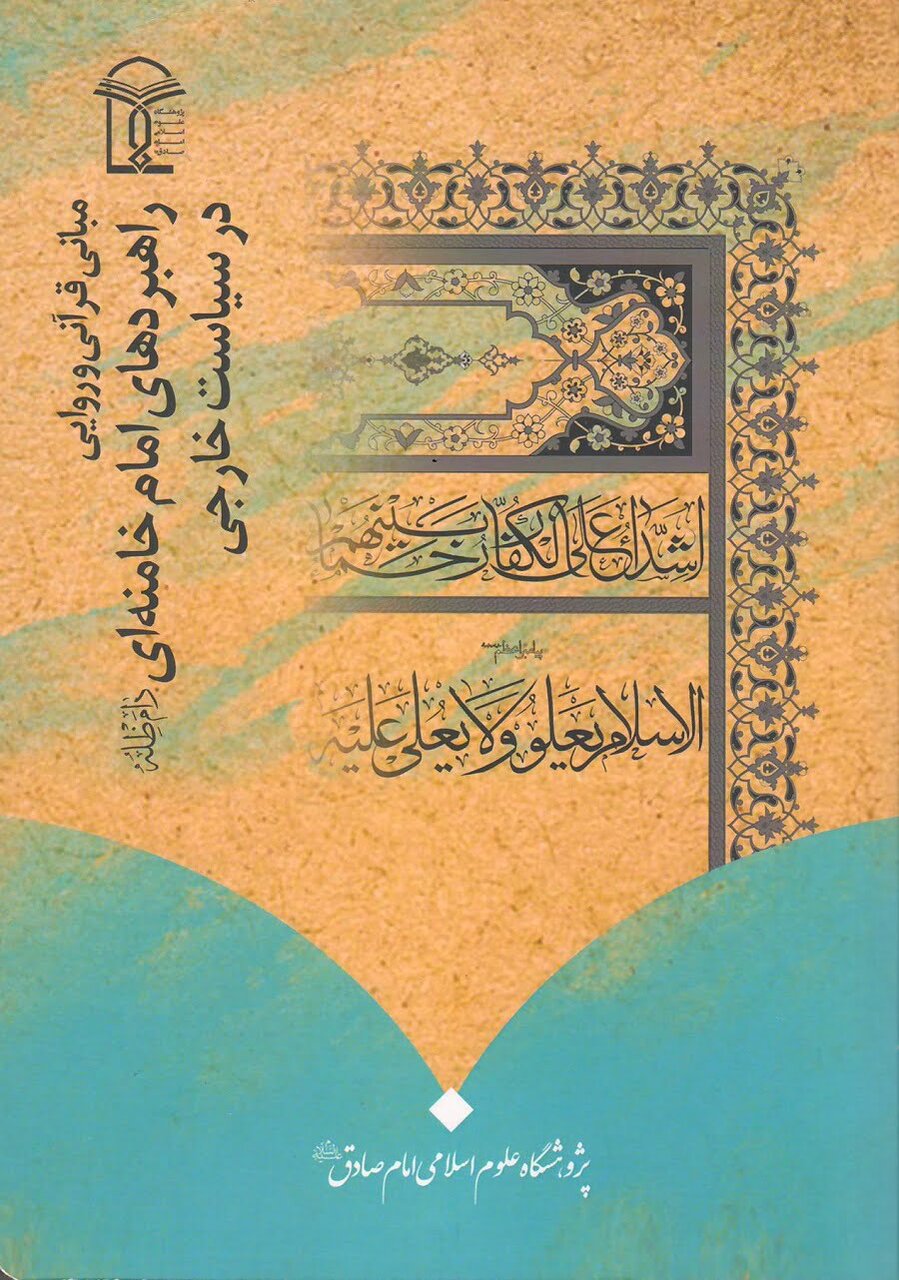 پژوهشگاه
علوم
اسلامی
امام
صادق
مبانی قرآنی و روایی
راهبردهای امام خامنه‌ای دام ظله
در سیاست خارجی
اشداء علی الکفار رحماء بینهم
پیامبر اعظم
الاسلام یعلو ولا یعلی علیه
پژوهشگاه علوم اسلامی امام صادق علیه السلام